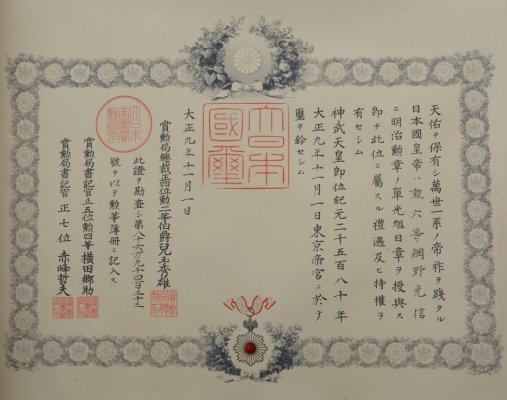 天佑ヲ保有シ萬世一系ノ帝祚ヲ踐タル
日本國皇帝ハ勲六等網野光信
ニ明治勲章ノ單光旭日章ヲ授與ス
即チ此位ニ屬スル禮遇及ヒ特權ヲ
有セシム
神武天皇即位紀元二千五百八十年
大正九年十一月一日東京帝宮ニ於テ
璽ヲ鈐セシム
大日本國璽
大正九年十一月一日
賞勲局總裁正四位勲二等伯爵兒玉秀雄
此證ヲ勘査シ第八十六万九千四百三十三
號ヲ以テ勲等簿册ニ記入ス
賞勲局書記官正五位勲四等横田郷助
賞勲局書記官正七位赤峰哲夫